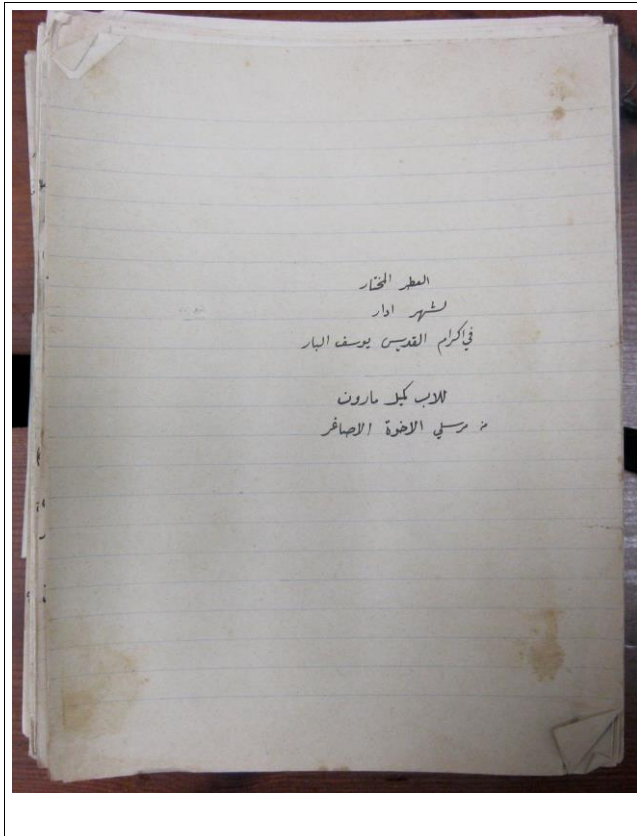 العطر المختار
لشهر اذار
في اكرام القديس يوسف البار
للاب كميل مارون
من مرسلي الاخوة الاصاغر